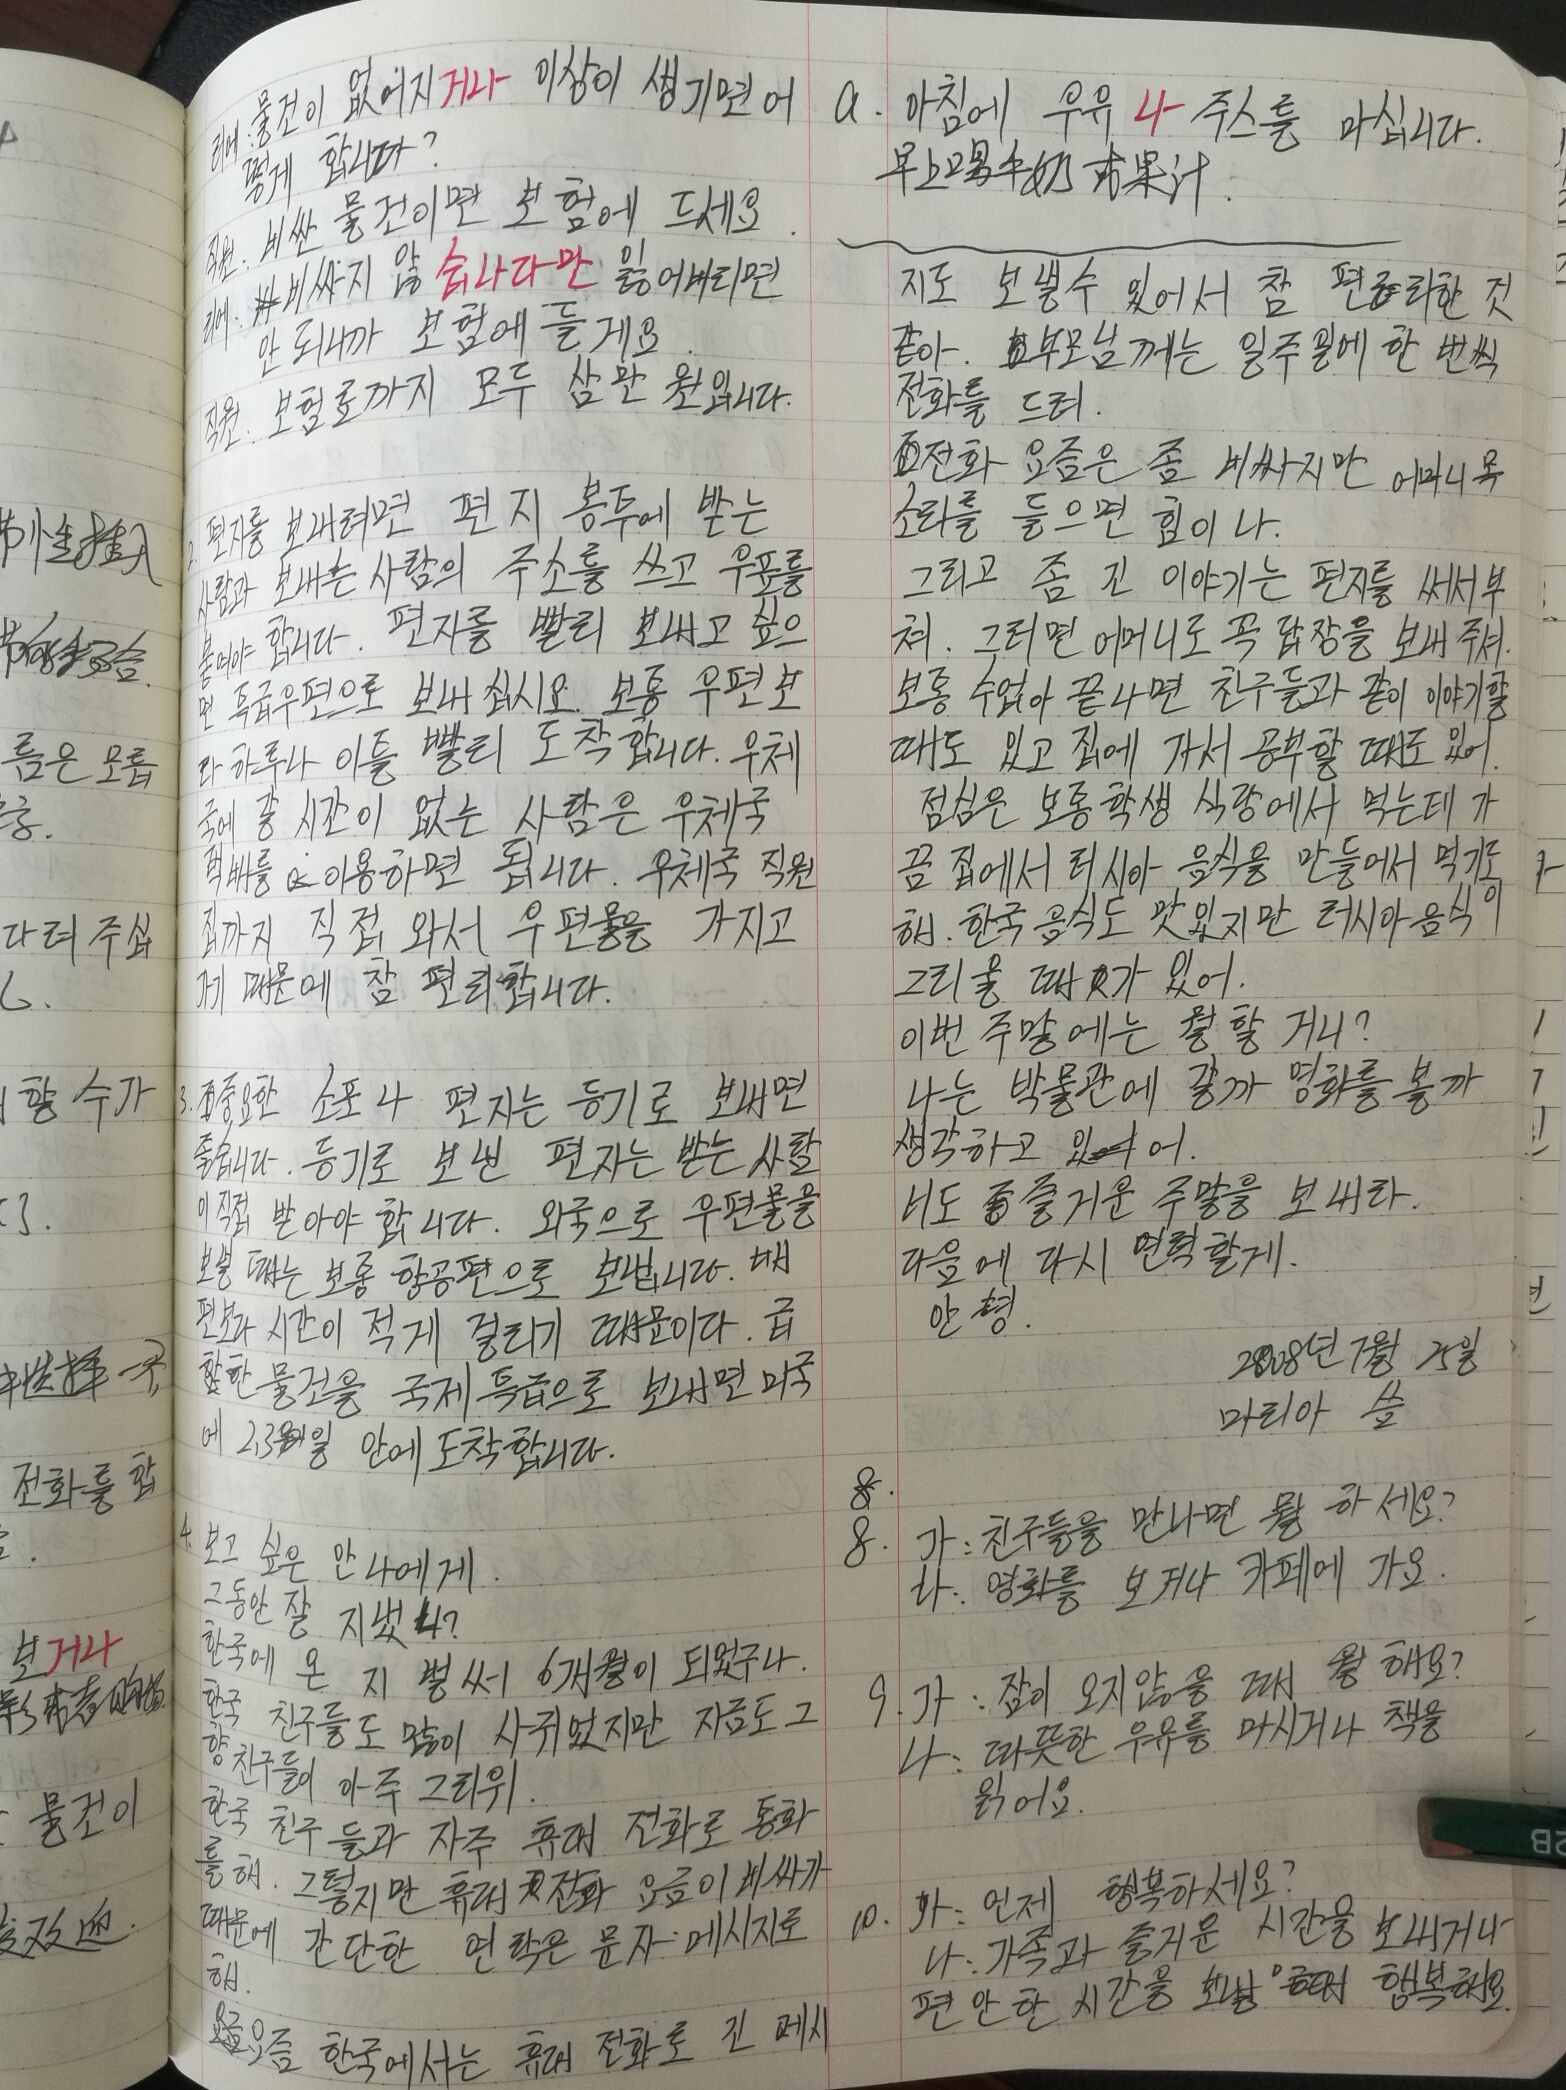 리에: 물건이 없어지거나 이상이 생기면 어
떻게 합니까?
직원: 비싼 물건이면 보험에 드세요.
리에: 비싸지 않습니다만 잃어버리면
안 되니까 보험에 들게요.
직원: 보험료까지 모두 삼만 원입니다.
2. 편지를 보내려면 편지 봉투에 받는
사람과 보내는 사람의 주소를 쓰고 우표를
붙여야 합니다. 편지를 빨리 보내고 싶으
면 특급우편으로 보내십시오. 보통 우편보
다 하루나 이틀 빨리 도착합니다. 우체
국에 갈 시간이 없는 사람은 우체국
택배를 이용하면 됩니다. 우체국 직원
집까지 직접 와서 우편물을 가지고
가기 때문에 참 편리합니다.
3. 중요한 소포나 편지는 등기로 보내면
좋습니다. 등기로 보낸 편지는 받는 사람
이 직접 받아야 합니다. 외국으로 우편물을
보낼 때는 보통 항공편으로 보냅니다. 배
편보다 시간이 적게 걸리기 때문이다. 급
한 물건을 국제특급으로 보내면 미국
에 2,3일 안에 도착합니다.
4. 보고 싶은 안나에게.
그동안 잘 지냈니?
한국에 온 지 벌써 6개월이 되었구나.
한국 친구들도 많이 사귀었지만 지금도 고
향 친구들이 아주 그리워.
한국 친구들과 자주 휴대 전화로 통화
를 해. 그렇지만 휴대 전화 요금이 비싸기
때문에 간단한 연락은 문자 메시지로
해.
요즘 한국에서는 휴대 전화로 긴 메시
a. 아침에 우유나 주스를 마십니다.
早上喝牛奶或果汁.
지도 보낼수 있어서 참 편리한 것
같아. 부모님께는 일주일에 한 번씩
전화를 드려.
전화 요즘은 좀 비싸지만 어머니 목
소리를 들으면 힘이 나.
그리고 좀 긴 이야기는 편지를 써서 부
쳐. 그러면 어머니도 꼭 답장을 보내 주셔.
보통 수업이 끝나면 친구들과 같이 이야기할
때도 있고 집에 가서 공부할 때도 있어.
점심은 보통 학생 식당에서 먹는데 가
끔 집에서 러시아 음식을 만들어서 먹기도
해. 한국 음식도 맛있지만 러시아 음식이
그리울 때가 있어.
이번 주말에는 뭘 할 거니?
나는 박물관에 갈까 영화를 볼까
생각하고 있어.
너도 즐거운 주말을 보내라.
다음에 다시 연락할게.
안녕.
2008년 7월 25일
마리아 씀
8.
8. 가: 친구들을 만나면 뭘 하세요?
나: 영화를 보거나 카페에 가요.
9. 가: 잠이 오지않을 때 뭘 해요?
나: 따뜻한 우유를 마시거나 책을
읽어요.
10. 가: 언제 행복하세요?
나: 가족과 즐거운 시간을 보내거나
편안한 시간을 보낼 때 행복해요
름은 모릅
다려 주십
할 수가
전화를 합
보거나
물건이
2B